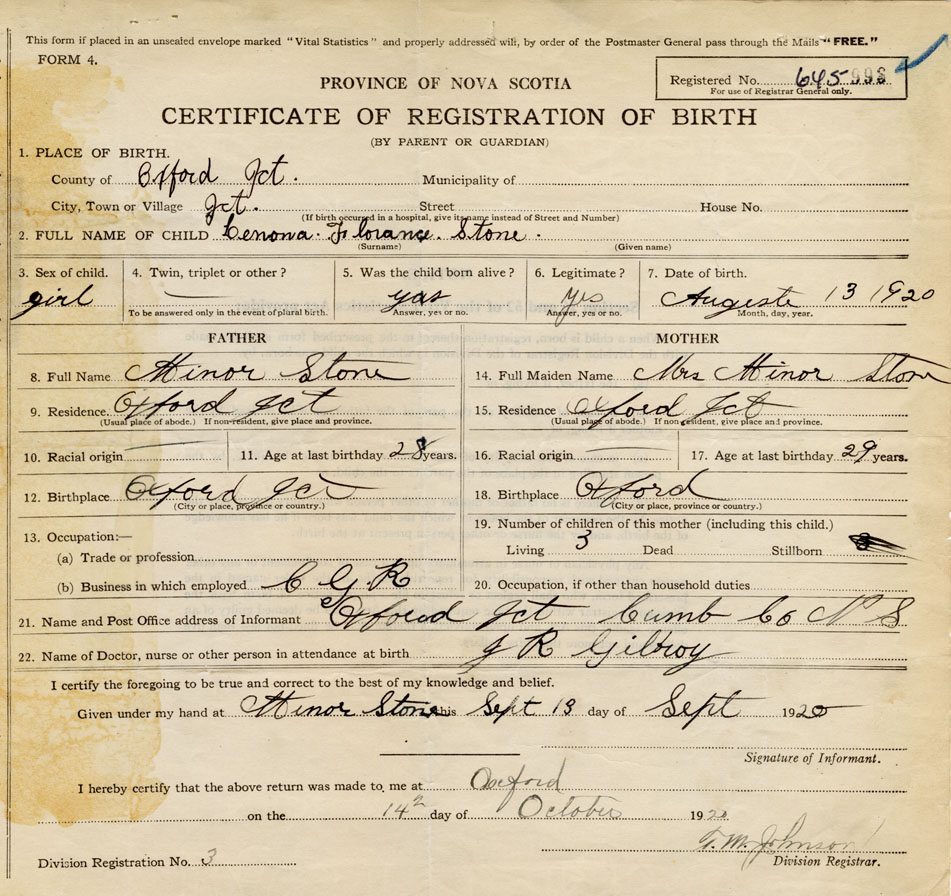 This form if placed in an unsealed envelope marked "Vital Statistics" and properly addressed will, by order of the Postmaster General pass through the Mails "FREE."
FORM 4.
Registered No. 645
For use of Registrar General only.
PROVINCE OF NOVA SCOTIA
CERTIFICATE OF REGISTRATION OF BIRTH
(BY PARENT OR GUARDIAN)
1. PLACE OF BIRTH.
County of Oxford Jct. Municipality of
City, Town or Village Jct. Street House No.
(If birth occured in a hospital, give its name instead of Street and Number)
2. FULL NAME OF CHILD Lenona. Florance. Stone.
(Surname) (Given name)
3. Sex of child. 4. Twin, triplet or other? 5. Was the child born alive? 6. Legitimate? 7. Date of birth.
girl yas yes Auguste 13 1920
To be answered only in the event of plural birth. Answer, yes or no. Answer, yes or no. Month, day, year.
FATHER MOTHER
8. Full Name Minor Stone 14. Full Maiden Name Mrs Minor Stone
9. Residence. Oxford Jct 15. Residence Oxford Jct
(Usual place of abode.) If non-resident, give place and province. (Usual place of abode.) If non resident, give place and province.
10. Racial origin 11. Age at last birthday 28 years. 16. Racial origin 17. Age at last birthday 29 years.
12. Birthplace Oxford Jct 18. Birthplace Oxford
(City or place, province or country.) (City or place, province or country.)
13. Occupation:— 19. Number of children of this mother (including this child.)
(a) Trade or profession Living 3 Dead Stillborn
(b) Business in which employed C G R 20. Occupation, if other than household duties
21. Name and Post Office address of Informant Oxford Jct Cumb Co N S
22. Name of Doctor, nurse or other person in attendance at birth J R Gilroy
I certify the foregoing to be true and correct to the best of my knowledge and belief.
Given under my hand at Minor Stone this Sept 13 day of Sept 1920
Signature of Informant.
I hereby certify that the above return was made to me at Oxford
on the 14 day of October 1920
T. M. Johnson
Division Registration No. 3 Division Registrar.